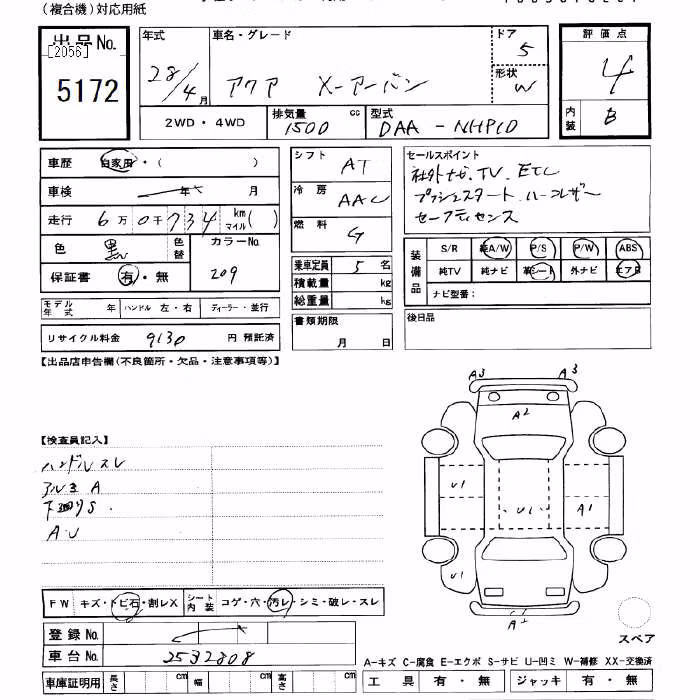 (複合機)対応用紙
出品No.
[2056]
5172
年式
28/4月
車名・グレード
アクア X-アーバン
ドア
5
形状
W
評価点
4
内装
B
2WD・4WD
排気量 cc
1500
型式
DAA-NHP10
車歴 自家用・( )
車検 年 月
走行 6万0千734 km マイル( )
色 黒 色替
カラーNo.
209
保証書 有・無
モデル年式 年 ハンドル 左・右 ディーラー・並行
リサイクル料金 9130 円 預託済
シフト AT
冷房 AAC
燃料 G
乗車定員 5 名
積載量 kg
総重量 kg
書類期限
月 日
セールスポイント
社外ナビ、TV、ETC
プッシュスタート ハーフレザー
セーフティセンス
装備品
S/R 純A/W P/S P/W ABS
純TV 純ナビ 革シート 外ナビ エアB
ナビ型番:
後日品
【出品店申告欄(不良箇所・欠品・注意事項等)】
【検査員記入】
ハンドルスレ
アルミA
下回りS
A・U
A3 A3
A2
U1
U1
A1
U1
スペア
FW キズ・トビ石・割レX シート内装 コゲ・穴・汚レ・シミ・破レ・スレ
登録No.
車台No. 2532808
車庫証明用 長さ cm 幅 cm 高さ cm
A-キズ C-腐食 E-エクボ S-サビ U-凹ミ W-補修 XX-交換済
工具 有・無 ジャッキ 有・無